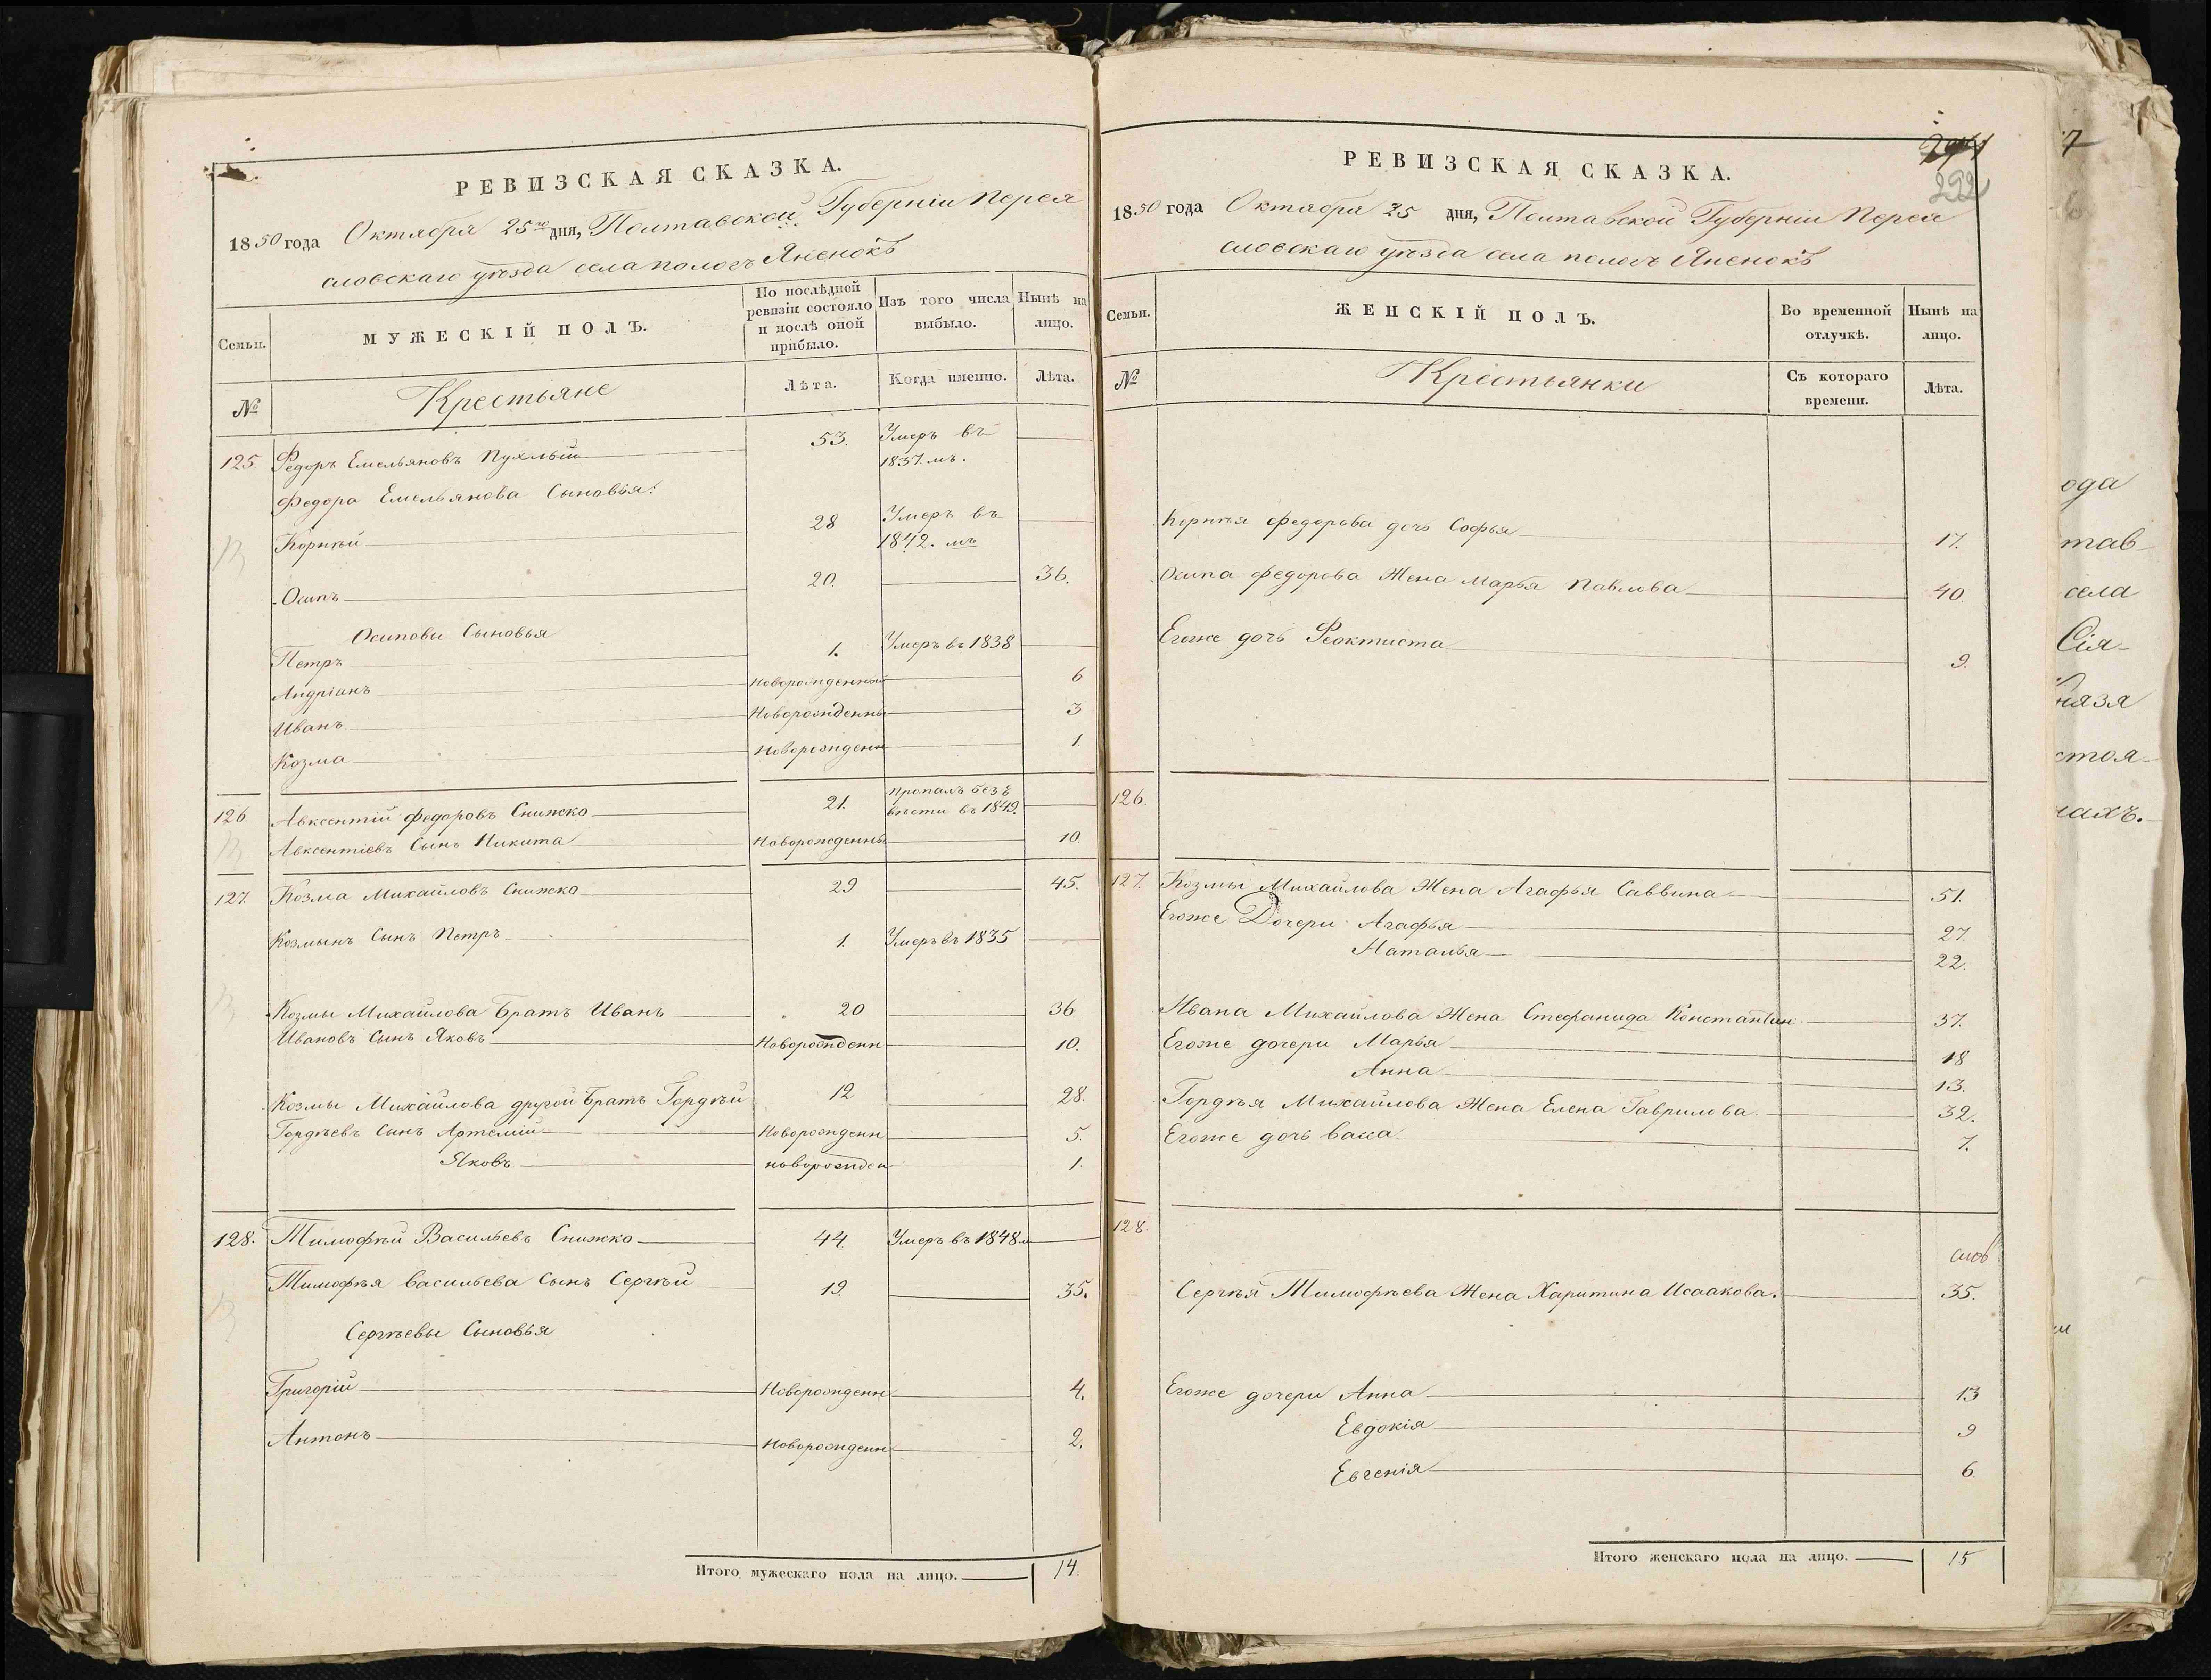 РЕВИЗСКАЯ СКАЗКА.
1850 года Октября 25го дня, Полтавской Губерніи Перея
словскаго уѣзда села пологъ Яненокъ
Семьи.
МУЖЕСКІЙ ПОЛЪ.
По послѣдней ревизіи состояло и послѣ оной прибыло.
Изъ того числа выбыло.
Нынѣ на лицо.
№
Крестьяне
Лѣта.
Когда именно.
Лѣта.
125 Федоръ Емельяновъ Пухлый 53. Умеръ въ
1837.мъ.
Федора Емельянова Сыновья:
Корнѣй 28 Умеръ въ
1842.мъ
Осипъ 20. 36.
Осиповы Сыновья
Петръ 1. Умеръ въ 1838
Андріанъ новорожденный 6
Иванъ Новорожденны 3
Козма Новорожденн 1
126 Авксентій Федоровъ Снижко 21. пропалъ безъ
вѣсти въ 1849.
Авксентіевъ Сынъ Никита Новорожденны 10
127. Козма Михайловъ Снижко 29 45.
Козмынъ Сынъ Петръ 1. Умеръ въ 1835
Козмы Михайлова Братъ Иванъ 20 36
Ивановъ Сынъ Яковъ Новорожденн 10.
Козмы Михайлова другой Братъ Гордѣй 12 28.
Гордѣевъ Сынъ Артемій Новорожденн 5.
Яковъ новорожден 1.
128. Тимофѣй Васильевъ Снижко 44. Умеръ въ 1848м
Тимофѣя Васильева Сынъ Сергѣй 19. 35.
Сергѣевы Сыновья
Григорій Новорожденн 4.
Антонъ Новорожденн 2.
Итого мужескаго пола на лицо. 14.
292
РЕВИЗСКАЯ СКАЗКА.
1850 года Октября 25 дня, Полтавской Губерніи Перея
словскаго уѣзда села пологъ Яненокъ
Семьи.
ЖЕНСКІЙ ПОЛЪ.
Во временной отлучкѣ.
Нынѣ на лицо.
№
Крестьянки
Съ котораго времени.
Лѣта.
Корнѣя Федорова дочь Софья 17.
Осипа Федорова Жена Марья Павлова 40
Егоже дочь Феоктиста 9.
126.
127. Козмы Михайлова Жена Агафья Саввина 51.
Егоже Дочери Агафья 27.
Наталья 22.
Ивана Михайлова Жена Стефанида Константин 37.
Егоже дочери Марья 18
Анна 13.
Гордѣя Михайлова Жена Елена Гаврилова 32.
Егоже дочь Васса 7.
128.
Сергѣя Тимофѣева Жена Харитина Исаакова. 35.
Егоже дочери Анна 13
Евдокія 9
Евгенія 6.
Итого женскаго пола на лицо. 15
7
ода
тав
села
Сія
нязя
стоя